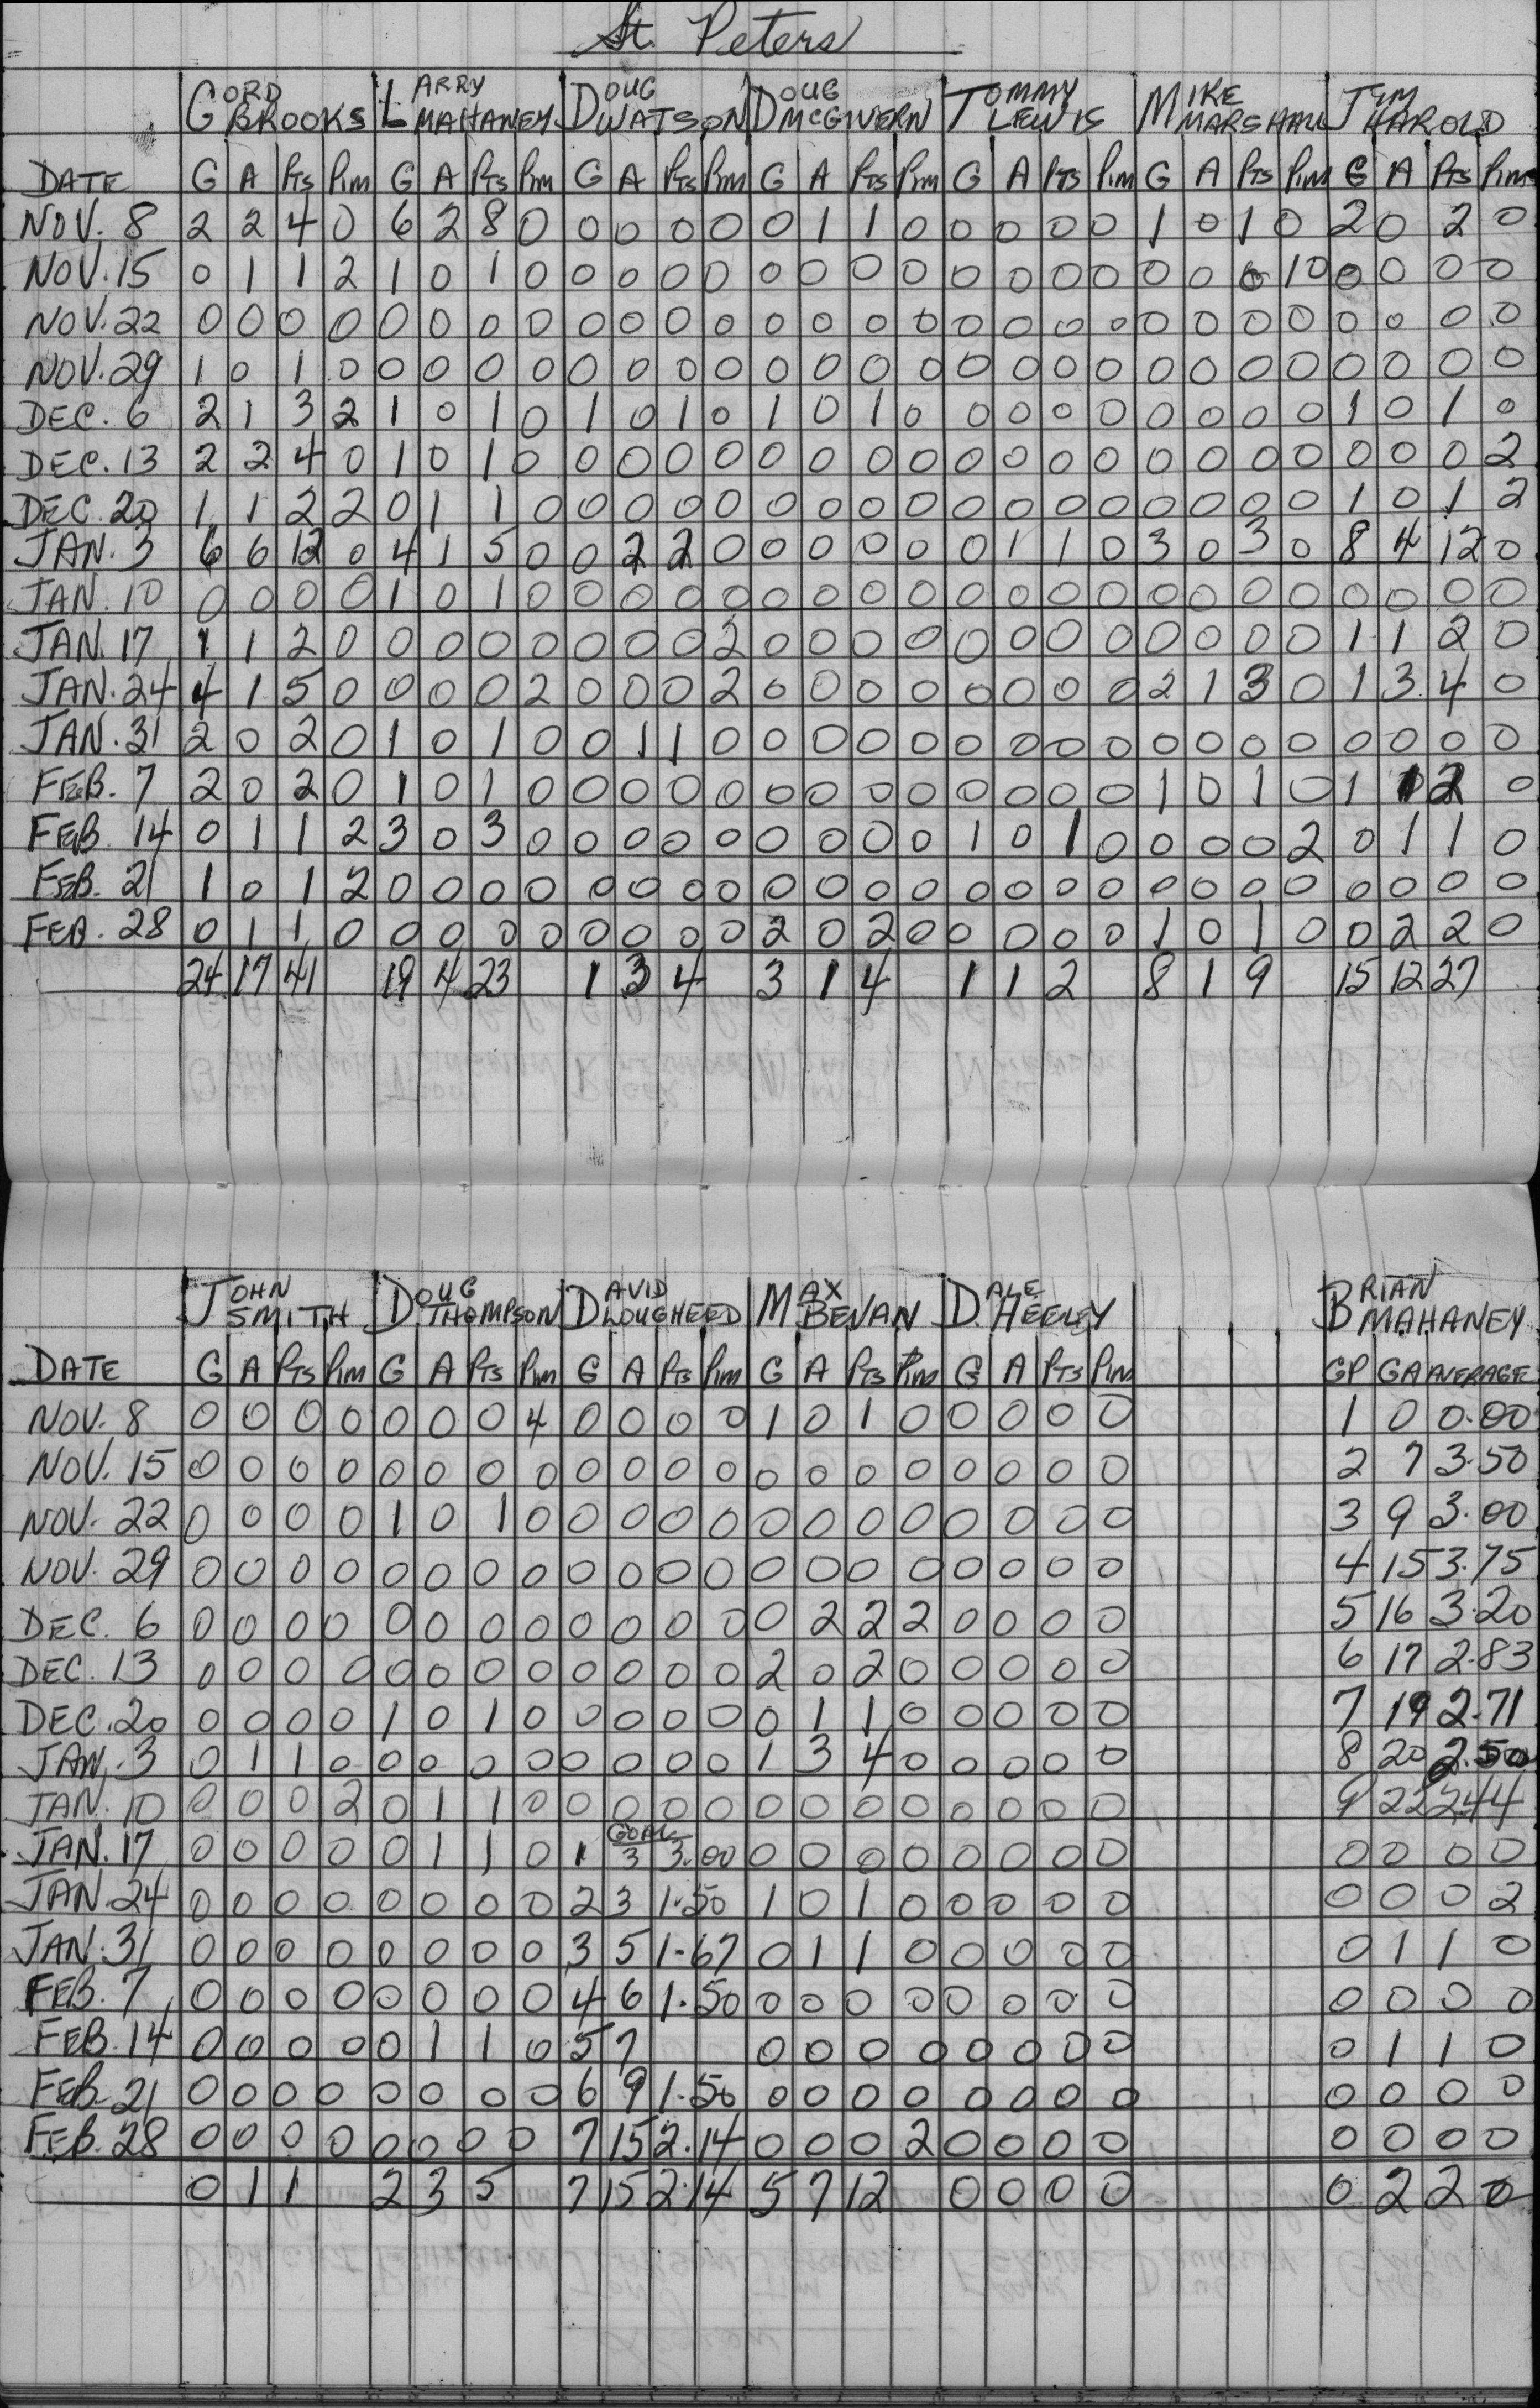 St. Peters
GORD BROOKS LARRY MAHANEY DOUG WATSON DOUG McGIVERN TOMMY LEWIS MIKE MARSHALL JIM HAROLD
DATE G A Pts Pim G A Pts Pim G A Pts Pim G A Pts Pim G A Pts Pim G A Pts Pim G A Pts Pim
NOV. 8 2 2 4 0 6 2 8 0 0 0 0 0 0 1 1 0 0 0 0 0 1 0 1 0 2 0 2 0
NOV. 15 0 1 1 2 1 0 1 0 0 0 0 0 0 0 0 0 0 0 0 0 0 0 0 10 0 0 0 0
NOV. 22 0 0 0 0 0 0 0 0 0 0 0 0 0 0 0 0 0 0 0 0 0 0 0 0 0 0 0 0
NOV. 29 1 0 1 0 0 0 0 0 0 0 0 0 0 0 0 0 0 0 0 0 0 0 0 0 0 0 0 0
DEC. 6 2 1 3 2 1 0 1 0 1 0 1 0 1 0 1 0 0 0 0 0 0 0 0 0 1 0 1 0
DEC. 13 2 2 4 0 1 0 1 0 0 0 0 0 0 0 0 0 0 0 0 0 0 0 0 0 0 0 0 2
DEC. 20 1 1 2 2 0 1 1 0 0 0 0 0 0 0 0 0 0 0 0 0 0 0 0 0 1 0 1 2
JAN. 3 6 6 12 0 4 1 5 0 0 2 2 0 0 0 0 0 0 1 1 0 3 0 3 0 8 4 12 0
JAN. 10 0 0 0 0 1 0 1 0 0 0 0 0 0 0 0 0 0 0 0 0 0 0 0 0 0 0 0 0
JAN. 17 1 1 2 0 0 0 0 0 0 0 0 2 0 0 0 0 0 0 0 0 0 0 0 0 1 1 2 0
JAN. 24 4 1 5 0 0 0 0 2 0 0 0 2 0 0 0 0 0 0 0 0 2 1 3 0 1 3 4 0
JAN. 31 2 0 2 0 1 0 1 0 0 1 1 0 0 0 0 0 0 0 0 0 0 0 0 0 0 0 0 0
FEB. 7 2 0 2 0 1 0 1 0 0 0 0 0 0 0 0 0 0 0 0 0 1 0 1 0 1 1 2 0
FEB. 14 0 1 1 2 3 0 3 0 0 0 0 0 0 0 0 0 1 0 1 0 0 0 0 2 0 1 1 0
FEB. 21 1 0 1 2 0 0 0 0 0 0 0 0 0 0 0 0 0 0 0 0 0 0 0 0 0 0 0 0
FEB. 28 0 1 1 0 0 0 0 0 0 0 0 0 2 0 2 0 0 0 0 0 1 0 1 0 0 2 2 0
24 17 41 19 4 23 1 3 4 3 1 4 1 1 2 8 1 9 15 12 27
JOHN SMITH DOUG THOMPSON DAVID LOUGHEED MAX BEVAN DALE HEELEY BRIAN MAHANEY
DATE G A Pts Pim G A Pts Pim G A Pts Pim G A Pts Pim G A Pts Pim GP GA AVERAGE
NOV. 8 0 0 0 0 0 0 0 4 0 0 0 0 1 0 1 0 0 0 0 0 1 0 0.00
NOV. 15 0 0 0 0 0 0 0 0 0 0 0 0 0 0 0 0 0 0 0 0 2 7 3.50
NOV. 22 0 0 0 0 1 0 1 0 0 0 0 0 0 0 0 0 0 0 0 0 3 9 3.00
NOV. 29 0 0 0 0 0 0 0 0 0 0 0 0 0 0 0 0 0 0 0 0 4 15 3.75
DEC. 6 0 0 0 0 0 0 0 0 0 0 0 0 0 2 2 2 0 0 0 0 5 16 3.20
DEC. 13 0 0 0 0 0 0 0 0 0 0 0 0 2 0 2 0 0 0 0 0 6 17 2.83
DEC. 20 0 0 0 0 1 0 1 0 0 0 0 0 0 1 1 0 0 0 0 0 7 19 2.71
JAN. 3 0 1 1 0 0 0 0 0 0 0 0 0 1 3 4 0 0 0 0 0 8 20 2.50
JAN. 10 0 0 0 2 0 1 1 0 0 0 0 0 0 0 0 0 0 0 0 0 9 22 2.44
GOAL
JAN. 17 0 0 0 0 0 1 1 0 1 3 3.00 0 0 0 0 0 0 0 0 0 0 0 0
JAN. 24 0 0 0 0 0 0 0 0 2 3 1.50 1 0 1 0 0 0 0 0 0 0 0 2
JAN. 31 0 0 0 0 0 0 0 0 3 5 1.67 0 1 1 0 0 0 0 0 0 1 1 0
FEB. 7 0 0 0 0 0 0 0 0 4 6 1.50 0 0 0 0 0 0 0 0 0 0 0 0
FEB. 14 0 0 0 0 0 1 1 0 5 7 0 0 0 0 0 0 0 0 0 1 1 0
FEB. 21 0 0 0 0 0 0 0 0 6 9 1.50 0 0 0 0 0 0 0 0 0 0 0 0
FEB. 28 0 0 0 0 0 0 0 0 7 15 2.14 0 0 0 2 0 0 0 0 0 0 0 0
0 1 1 2 3 5 7 15 2.14 5 7 12 0 0 0 0 0 2 2 0